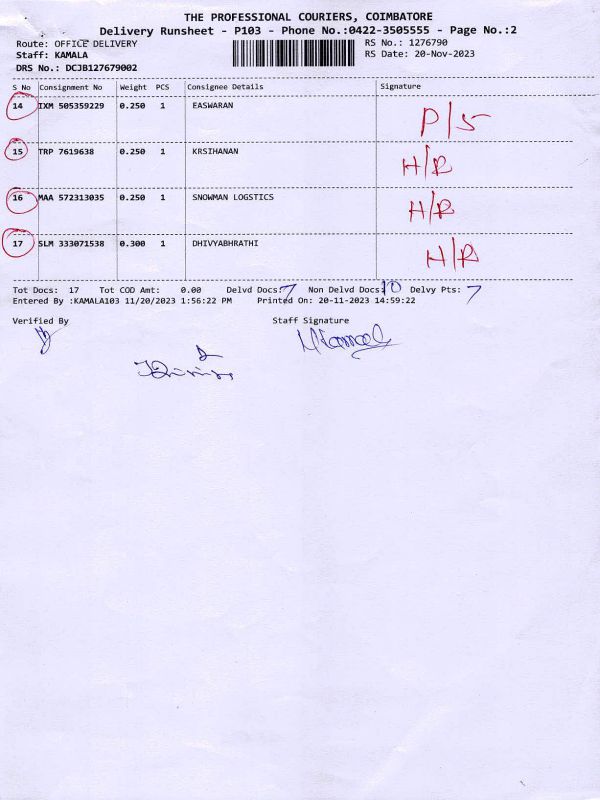 THE PROFESSIONAL COURIERS, COIMBATORE
Delivery Runsheet - P103 - Phone No.:0422-3505555 - Page No.:2
Route: OFFICE DELIVERY RS No.: 1276790
Staff: KAMALA RS Date: 20-Nov-2023
DRS No.: DCJB127679002
S No Consignment No Weight PCS Consignee Details Signature
14 IXM 505359229 0.250 1 EASWARAN P/S
15 TRP 7619638 0.250 1 KRSIHANAN H/R
16 MAA 572313035 0.250 1 SNOWMAN LOGSTICS H/R
17 SLM 333071538 0.300 1 DHIVYABHRATHI H/R
Tot Docs: 17 Tot COD Amt: 0.00 Delvd Docs:7 Non Delvd Docs:10 Delvy Pts: 7
Entered By :KAMALA103 11/20/2023 1:56:22 PM Printed On: 20-11-2023 14:59:22
Verified By Staff Signature